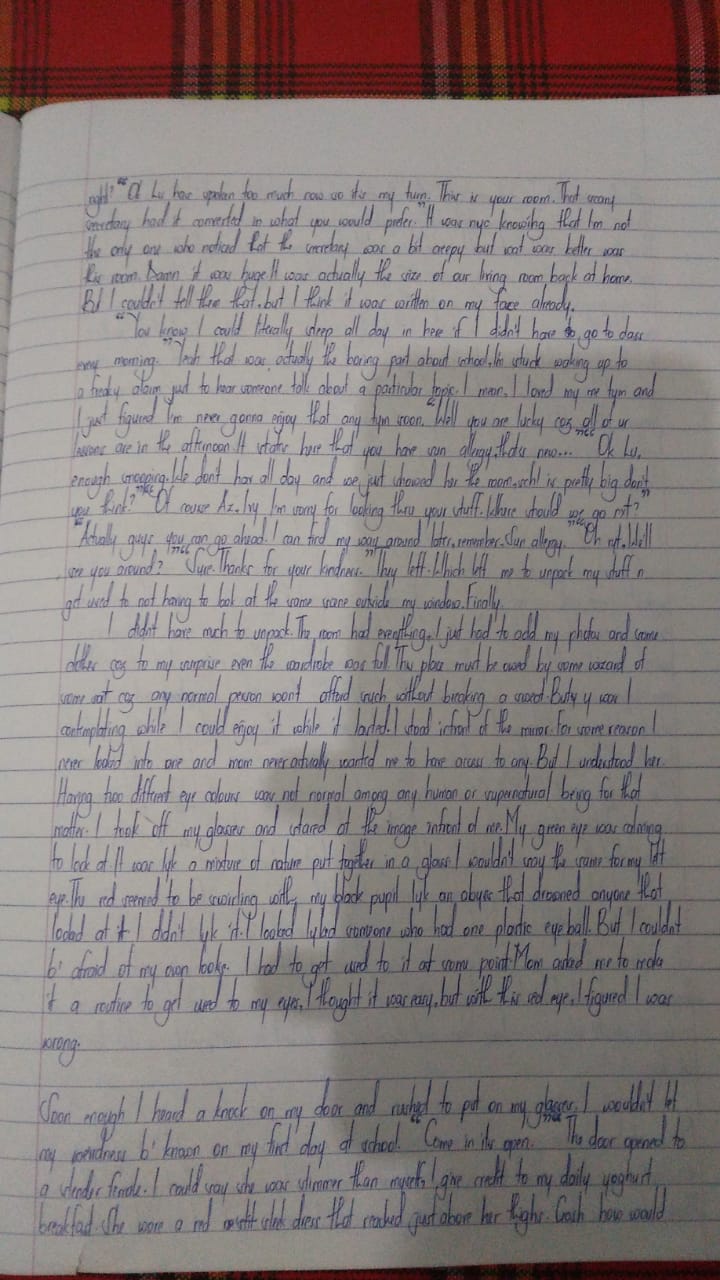 right?" "Ok Lu have spoken too much now so its my turn. This is your room. That scary
secretary had it converted in what you would prefer." It was nyc knowing that I'm not
the only one who noticed that the secretary was a bit creepy but wat was better was
the room. Damn it was huge. It was actually the size of our living room back at home.
But I couldn't tell them that, but I think it was written on my face already.
"You know I could literally sleep all day in here if I didn't have to go to class
every morning." Yeah that was actually the boring part about school. Im stuck waking up to
a freaky alarm just to hear someone talk about a particular topic. I mean, I loved my me tym and
I just figured I'm never gonna enjoy that any tym soon. "Well you are lucky coz all of ur
lessons are in the afternoon. It states here that you have sun allergy, thats new..." "Ok Lu,
enough snooping. We don't hav all day and we just showed her the room, schl is pretty big don't
you think?" "Of course Az. Ivy I'm sorry for looking thru your stuff. Where should we go nxt?"
"Actually guys you can go ahead. I can find my way around later, remember. Sun allergy." "Oh ryt. Well
see you around?" "Sure. Thanks for your kindness." They left. Which left me to unpack my stuff n
get used to not having to look at the same scene outside my window. Finally.
I didnt have much to unpack. The room had everything. I just had to add my photos and some
clothes coz to my surprise even the wardrobe was full. This place must be owned by some wizard of
some sort coz any normal person won't afford such without breaking a sweat. But y was I
contemplating while I could enjoy it while it lasted. I stood infront of the mirror. For some reason I
never looked into one and mom never actually wanted me to have access to any. But I understood her.
Having two different eye colours was not normal among any human or supernatural being for that
matter. I took off my glasses and stared at the image infront of me. My green eye was calming
to look at. It was lyk a mixture of nature put together in a glass. I wouldn't say the same for my left
eye. The red seemed to be swirling with my black pupil lyk an abyss that drowned anyone that
looked at it. I didn't lyk it. I looked lyk someone who had one plastic eye ball. But I couldn't
b' afraid of my own looks. I had to get used to it at some point. Mom asked me to make
it a routine to get used to my eyes, I thought it was easy, but with this red eye, I figured I was
wrong.
Soon enough I heard a knock on my door and rushed to put on my glasses. I wouldn't let
my weirdness b' known on my first day at school. "Come in its open." The door opened to
a slender female. I could say she was slimmer than myself, I give credit to my daily yoghurt
breakfast. She wore a red sleek dress that reached just above her thighs. Gosh how would